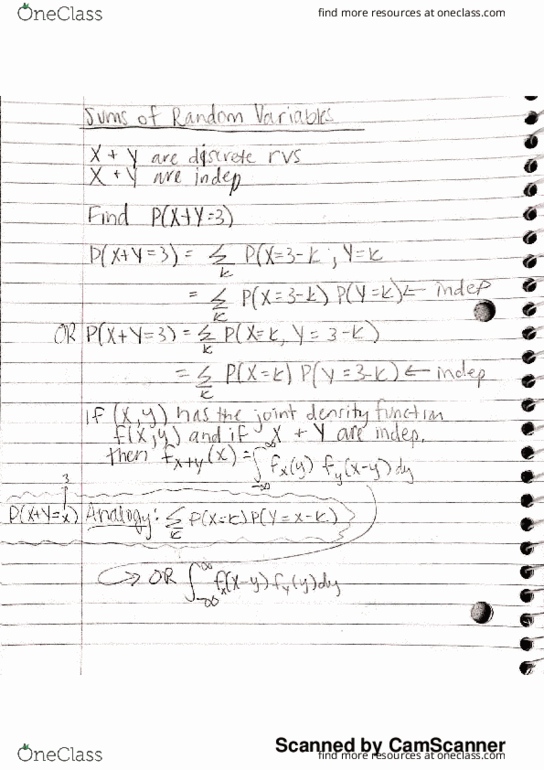 OneClass
find more resources at oneclass.com
Sums of Random Variables
X + Y are discrete rvs
X + Y are indep
Find P(X+Y=3)
P(X+Y=3) = Σ_k P(X=3-k, Y=k
= Σ_k P(X=3-k) P(Y=k) ← indep
OR P(X+Y=3) = Σ_k P(X=k, Y=3-k)
= Σ_k P(X=k) P(Y=3-k) ← indep
if (X,Y) has the joint density function
f(x,y) and if X + Y are indep.
then f_{X+Y}(x) = ∫_{-∞}^{∞} f_X(y) f_Y(x-y) dy
3
P(X+Y=x) Analogy: Σ_k P(X=k)P(Y=x-k)
→ OR ∫_{-∞}^{∞} f_X(x-y) f_Y(y) dy
Scanned by CamScanner
OneClass
find more resources at oneclass.com